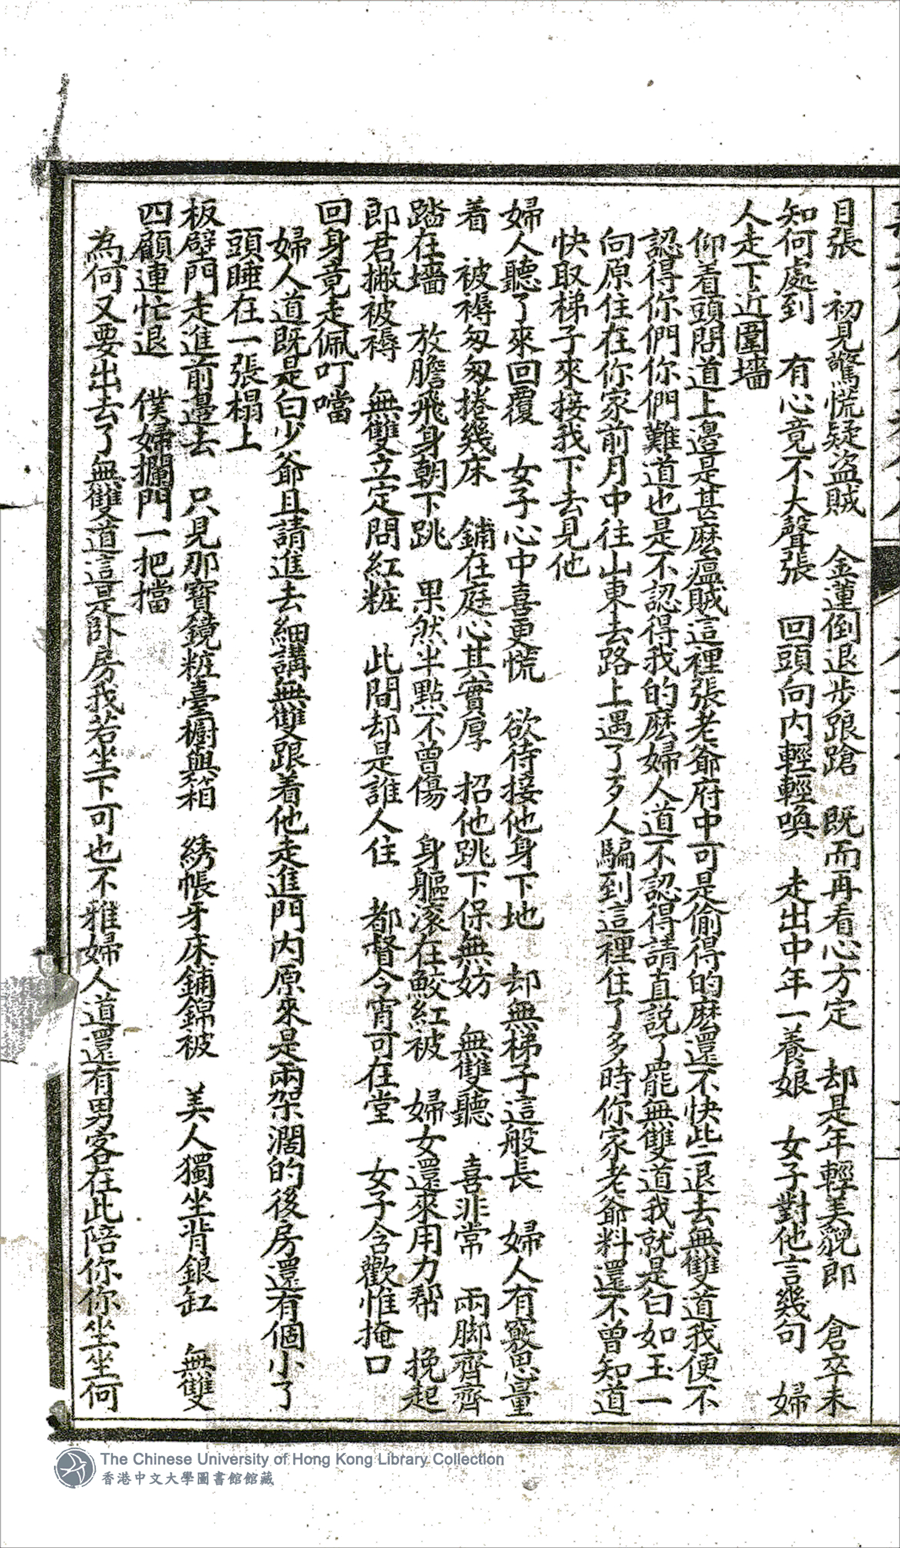 目張　初見驚慌疑盗賊　金蓮倒退步踉蹌　既而再看心方定　却是年輕美貌郎　倉卒未
知何處到　有心竟不大聲張　回頭向內輕輕喚　走出中年一養娘　女子對他言幾句　婦
人走下近圍墻
仰看頭問道上邊是甚麽瘟賊這裡張老爺府中可是偷得的麽還不快些退去無雙道我便不
認得你們你們難道也是不認得我的麽婦人道不認得請直説了罷無雙道我就是白如玉一
向原住在你家前月中往山東去路上遇了歹人騙到這裡住了多時你家老爺料還不曾知道
快取梯子來接我下去見他
婦人聽了來回覆　女子心中喜更慌　欲待接他身下地　却無梯子這般長　婦人有竅思量
着　被褥匆匆捲幾床　鋪在庭心其實厚　招他跳下保無妨　無雙聽　喜非常　兩脚齊齊
踏在墻　放膽飛身朝下跳　果然半點不曾傷　身軀滚在鮫紅被　婦女還來用力帮　挽起
郎君撇被褥　無雙立定問紅粧　此間却是誰人住　都督今宵可在堂　女子含歡惟掩口
回身竟走佩叮噹
婦人道既是白少爺且請進去細講無雙跟着他走進門內原來是兩架濶的後房還有個小了
頭睡在一張榻上
板壁門走進前邊去　只見那寶鏡粧臺櫥與箱　綉帳牙床鋪錦被　美人獨坐背銀缸　無雙
四顧連忙退　僕婦攔門一把擋
為何又要出去了無雙道這是卧房我若坐下可也不雅婦人道還有男客在此陪你你坐坐何
The Chinese University of Hong Kong Library Collection
香港中文大學圖書館館藏